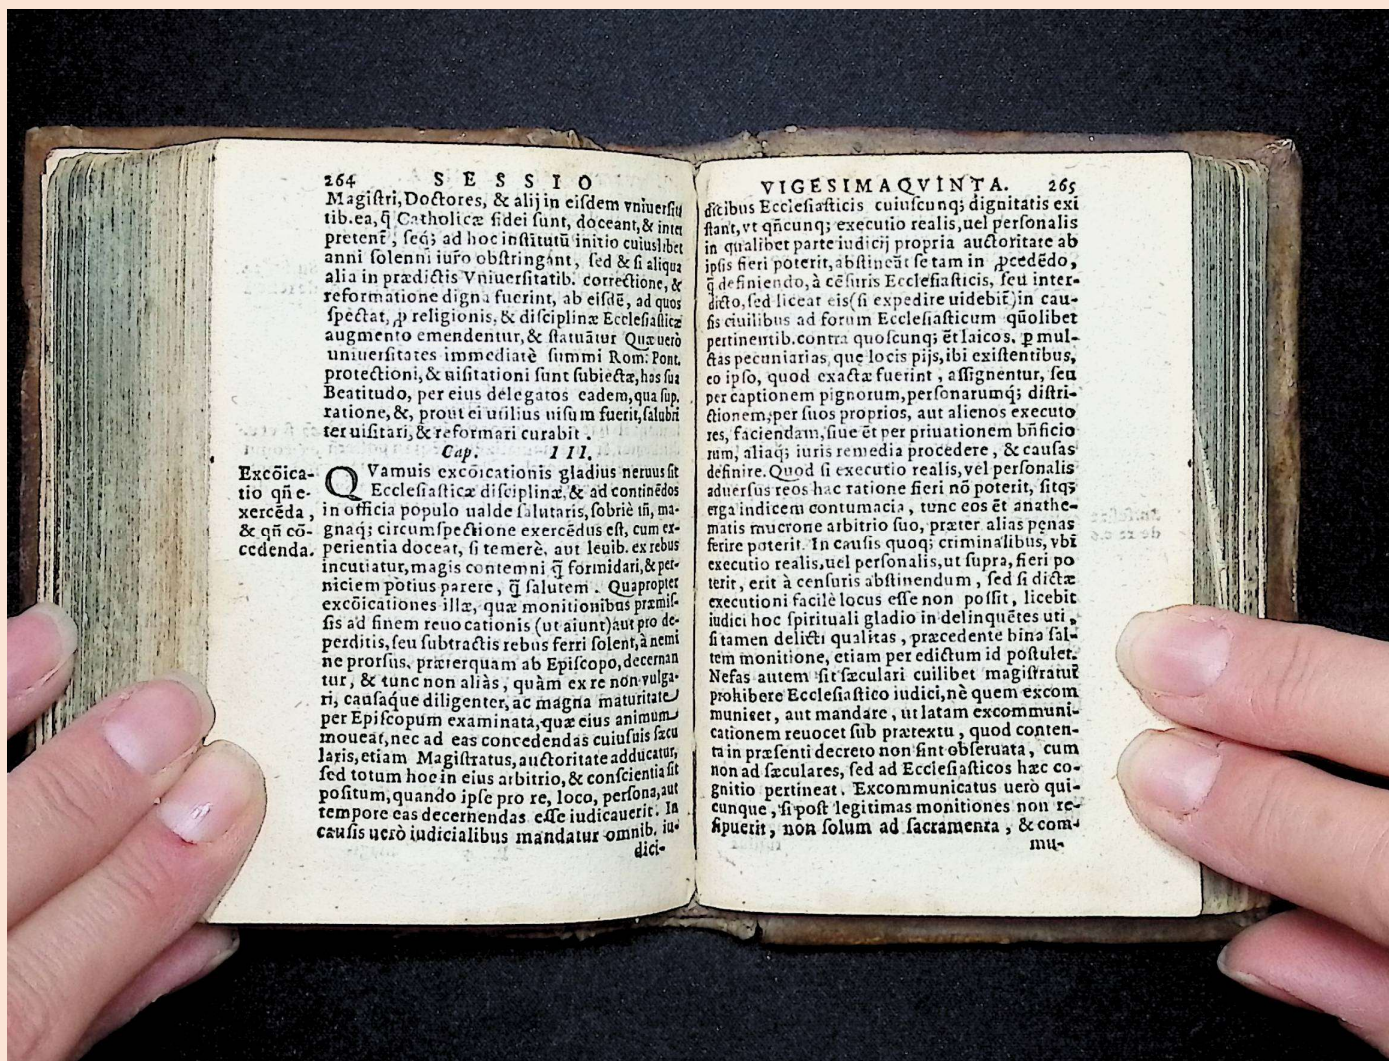 264 SESSIO
Magiſtri, Doctores, & alij in eiſdem vniuerſita
tib. ea, q̃ Catholicæ fidei ſunt, doceant, & inter
pretent̃, ſeq́; ad hoc inſtitutũ initio cuiuslibet
anni ſolenni iuro obſtringant, ſed & ſi aliqua
alia in prædictis Vniuerſitatib. correctione, &
reformatione digna fuerint, ab eiſdẽ, ad quos
ſpectat, ꝓ religionis, & diſciplinæ Eccleſiaſticæ
augmento emendentur, & ſtatuãtur Quæ uerò
uniuerſitates immediatè ſummi Rom. Pont.
protectioni, & uiſitationi ſunt ſubiectæ, has ſua
Beatitudo, per eius delegatos eadem, qua ſup.
ratione, &, prout ei utilius uiſum fuerit, ſalubri
ter uiſitari, & reformari curabit.
Cap. III.
Excõica-
tio qñ e-
xercẽda,
& qñ cõ-
cedenda.
QVamuis excõicationis gladius neruus ſit
Eccleſiaſticæ diſciplinæ, & ad continẽdos
in officia populo ualde ſalutaris, ſobriè tñ, ma-
gnaq; circumſpectione exercẽdus eſt, cum ex-
perientia doceat, ſi temerè, aut leuib. ex rebus
incutiatur, magis contemni q̃ formidari, & per-
niciem potius parere, q̃ ſalutem. Quapropter
excõicationes illæ, quæ monitionibus præmiſ-
ſis ad finem reuocationis (ut aiunt) aut pro de-
perditis, ſeu ſubtractis rebus ferri ſolent, à nemi
ne prorſus, præterquam ab Epiſcopo, decernan
tur, & tunc non aliàs, quàm ex re non vulga-
ri, cauſaque diligenter, ac magna maturitate
per Epiſcopum examinata, quæ eius animum
moueat, nec ad eas concedendas cuiuſuis ſæcu
laris, etiam Magiſtratus, auctoritate adducatur,
ſed totum hoc in eius arbitrio, & conſcientia ſit
poſitum, quando ipſe pro re, loco, perſona, aut
tempore eas decernendas eſſe iudicauerit. In
cauſis uerò iudicialibus mandatur omnib. iu-
dici-
VIGESIMAQVINTA. 265
dicibus Eccleſiaſticis cuiuſcunq; dignitatis exi
ſtant, vt qñcunq; executio realis, uel perſonalis
in qualibet parte iudicij propria auctoritate ab
ipſis fieri poterit, abſtineãt ſe tam in ꝓcedẽdo,
q̃ definiendo, à cẽſuris Eccleſiaſticis, ſeu inter-
dicto, ſed liceat eis (ſi expedire uidebit̃) in cau-
ſis ciuilibus ad forum Eccleſiaſticum quõlibet
pertinentib. contra quoſcunq; ẽt laicos, ꝑ mul-
ctas pecuniarias, que locis pijs, ibi exiſtentibus,
eo ipſo, quod exactæ fuerint, aſſignentur, ſeu
per captionem pignorum, perſonarumq́; diſtri-
ctionem, per ſuos proprios, aut alienos executo
res, faciendam, ſiue ẽt per priuationem bñficio
rum, aliaq́; iuris remedia procedere, & cauſas
definire. Quod ſi executio realis, vel perſonalis
aduerſus reos hac ratione fieri nõ poterit, ſitq;
erga indicem contumacia, tunc eos ẽt anathe-
matis mucrone arbitrio ſuo, præter alias pęnas
ferire poterit. In cauſis quoq; criminalibus, vbi
executio realis, uel perſonalis, ut ſupra, fieri po
terit, erit à cenſuris abſtinendum, ſed ſi dictæ
executioni facilè locus eſſe non poſſit, licebit
iudici hoc ſpirituali gladio in delinquẽtes uti,
ſi tamen delicti qualitas, præcedente bina ſal-
tem monitione, etiam per edictum id poſtulet.
Nefas autem ſit ſæculari cuilibet magiſtratui
prohibere Eccleſiaſtico iudici, nè quem excom
municet, aut mandare, ut latam excommuni-
cationem reuocet ſub prætextu, quod conten-
ta in præſenti decreto non ſint obſeruata, cum
non ad ſæculares, ſed ad Eccleſiaſticos hæc co-
gnitio pertineat. Excommunicatus uerò qui-
cunque, ſi poſt legitimas monitiones non re-
ſipuerit, non ſolum ad ſacramenta, & com-
mu-